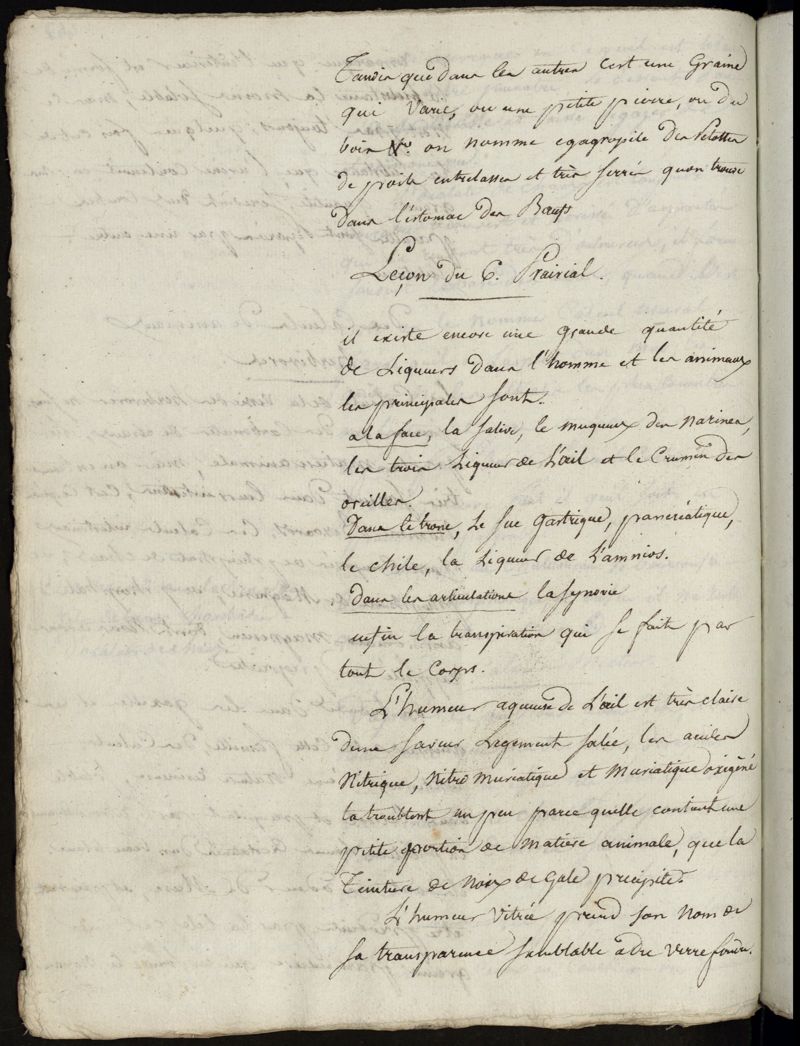 Tandis que dans les autres c'est une Graine
qui varie, ou une petite pierre, ou du
bois on nomme egagropile des Pelottes
de poils entrelassés et très serrés quon trouve
Dans l'estomac des Bœufs
Leçon du 6. Prairial.
il existe encore une grande quantité
de Liqueurs dans l'homme et les animaux
les principales sont.
a la face, la salive, le muqueux des narines,
les trois Liqueurs de L'œil et le Crumen des
oreilles.
Dans le tronc, Le suc Gastrique, pancréatique,
le chile, la Liqueur de L'amnios.
dans les articulations la synovie
enfin la transpiration qui se fait par
tout le Corps.
L'humeur aqueuse de L'œil est très claire
dune saveur Legerment salée, les acides
Nitrique, Nitro muriatique et muriatique oxigèné
la troublent un peu parce quelle contient une
petite portion de matière animale, que la
Teinture de Noix de Gale précipite.
L'humeur Vitrée prend son Nom de
sa transparence semblable à du verre fondu.